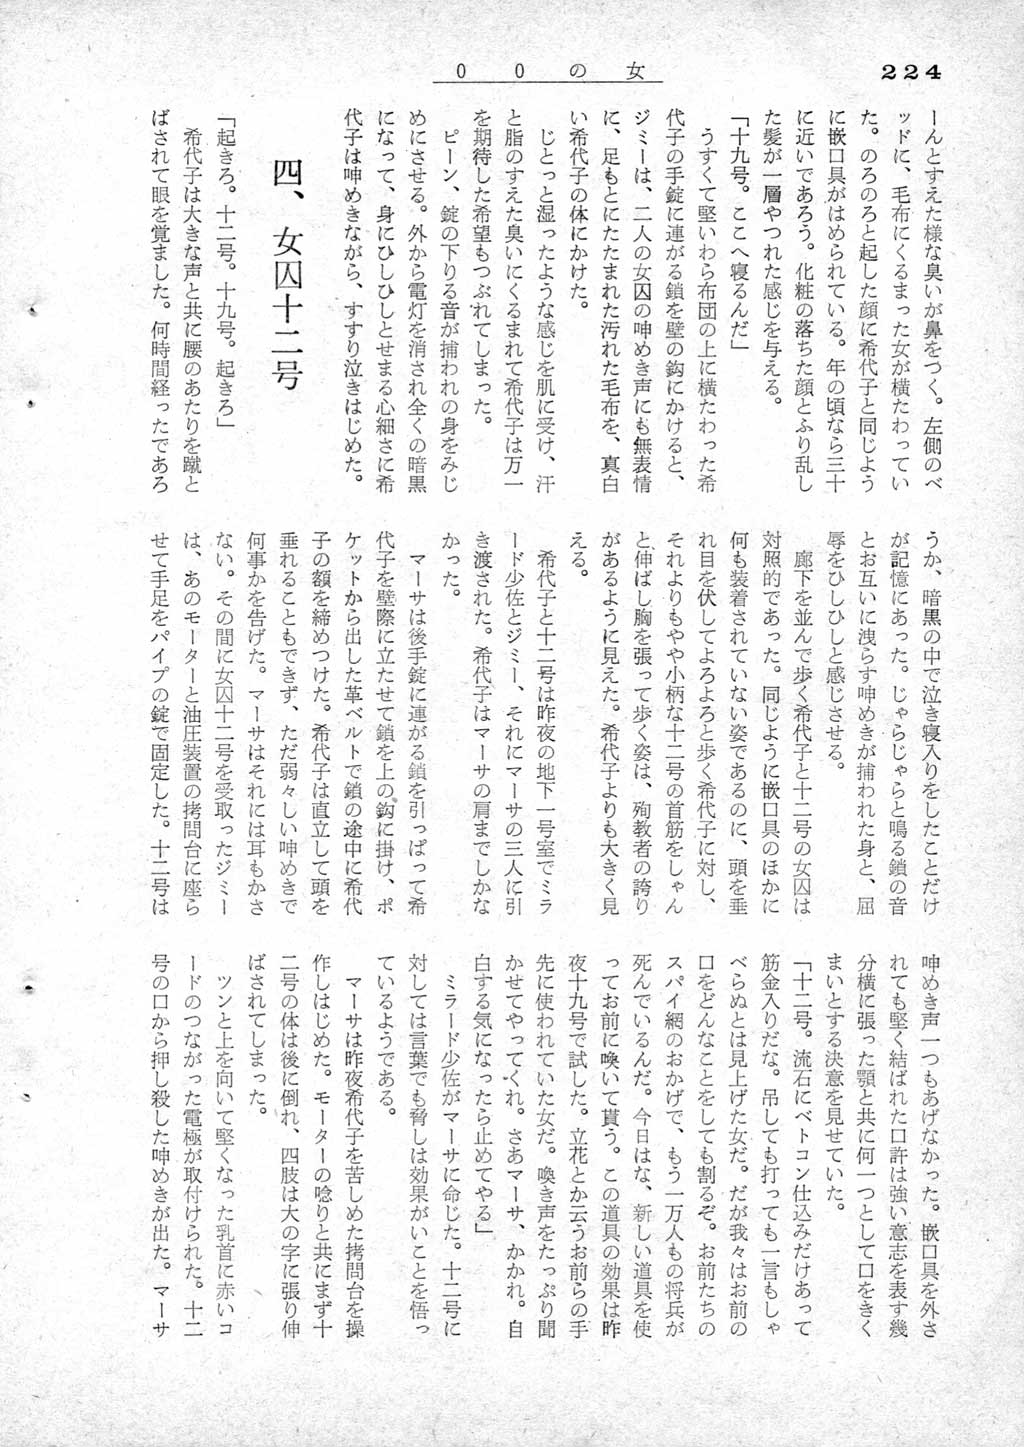 ００の女
224
ーんとすえた様な臭いが鼻をつく。左側のベ
ッドに、毛布にくるまった女が横たわってい
た。のろのろと起した顔に希代子と同じよう
に嵌口具がはめられている。年の頃なら三十
に近いであろう。化粧の落ちた顔とふり乱し
た髪が一層やつれた感じを与える。
「十九号。ここへ寝るんだ」
うすくて堅いわら布団の上に横たわった希
代子の手錠に連がる鎖を壁の鈎にかけると、
ジミーは、二人の女囚の呻めき声にも無表情
に、足もとにたたまれた汚れた毛布を、真白
い希代子の体にかけた。
じとっと湿ったような感じを肌に受け、汗
と脂のすえた臭いにくるまれて希代子は万一
を期待した希望もつぶれてしまった。
ピーン、錠の下りる音が捕われの身をみじ
めにさせる。外から電灯を消され全くの暗黒
になって、身にひしひしとせまる心細さに希
代子は呻めきながら、すすり泣きはじめた。
四、女囚十二号
「起きろ。十二号。十九号。起きろ」
希代子は大きな声と共に腰のあたりを蹴と
ばされて眼を覚ました。何時間経ったであろ
うか、暗黒の中で泣き寝入りをしたことだけ
が記憶にあった。じゃらじゃらと鳴る鎖の音
とお互いに洩らす呻めきが捕われた身と、屈
辱をひしひしと感じさせる。
廊下を並んで歩く希代子と十二号の女囚は
対照的であった。同じように嵌口具のほかに
何も装着されていない姿であるのに、頭を垂
れ目を伏してよろよろと歩く希代子に対し、
それよりもやや小柄な十二号の首筋をしゃん
と伸ばし胸を張って歩く姿は、殉教者の誇り
があるように見えた。希代子よりも大きく見
える。
希代子と十二号は昨夜の地下一号室でミラ
ード少佐とジミー、それにマーサの三人に引
き渡された。希代子はマーサの肩までしかな
かった。
マーサは後手錠に連がる鎖を引っぱって希
代子を壁際に立たせて鎖を上の鈎に掛け、ポ
ケットから出した革ベルトで鎖の途中に希代
子の額を締めつけた。希代子は直立して頭を
垂れることもできず、ただ弱々しい呻めきで
何事かを告げた。マーサはそれには耳もかさ
ない。その間に女囚十二号を受取ったジミー
は、あのモーターと油圧装置の拷問台に座ら
せて手足をパイプの錠で固定した。十二号は
呻めき声一つもあげなかった。嵌口具を外さ
れても堅く結ばれた口許は強い意志を表す幾
分横に張った顎と共に何一つとして口をきく
まいとする決意を見せていた。
「十二号。流石にベトコン仕込みだけあって
筋金入りだな。吊しても打っても一言もしゃ
べらぬとは見上げた女だ。だが我々はお前の
口をどんなことをしても割るぞ。お前たちの
スパイ網のおかげで、もう一万人もの将兵が
死んでいるんだ。今日はな、新しい道具を使
ってお前に喚いて貰う。この道具の効果は昨
夜十九号で試した。立花とか云うお前らの手
先に使われていた女だ。喚き声をたっぷり聞
かせてやってくれ。さあマーサ、かかれ。自
白する気になったら止めてやる」
ミラード少佐がマーサに命じた。十二号に
対しては言葉でも脅しは効果がいことを悟っ
ているようである。
マーサは昨夜希代子を苦しめた拷問台を操
作しはじめた。モーターの唸りと共にまず十
二号の体は後に倒れ、四肢は大の字に張り伸
ばされてしまった。
ツンと上を向いて堅くなった乳首に赤いコ
ードのつながった電極が取付けられた。十二
号の口から押し殺した呻めきが出た。マーサ